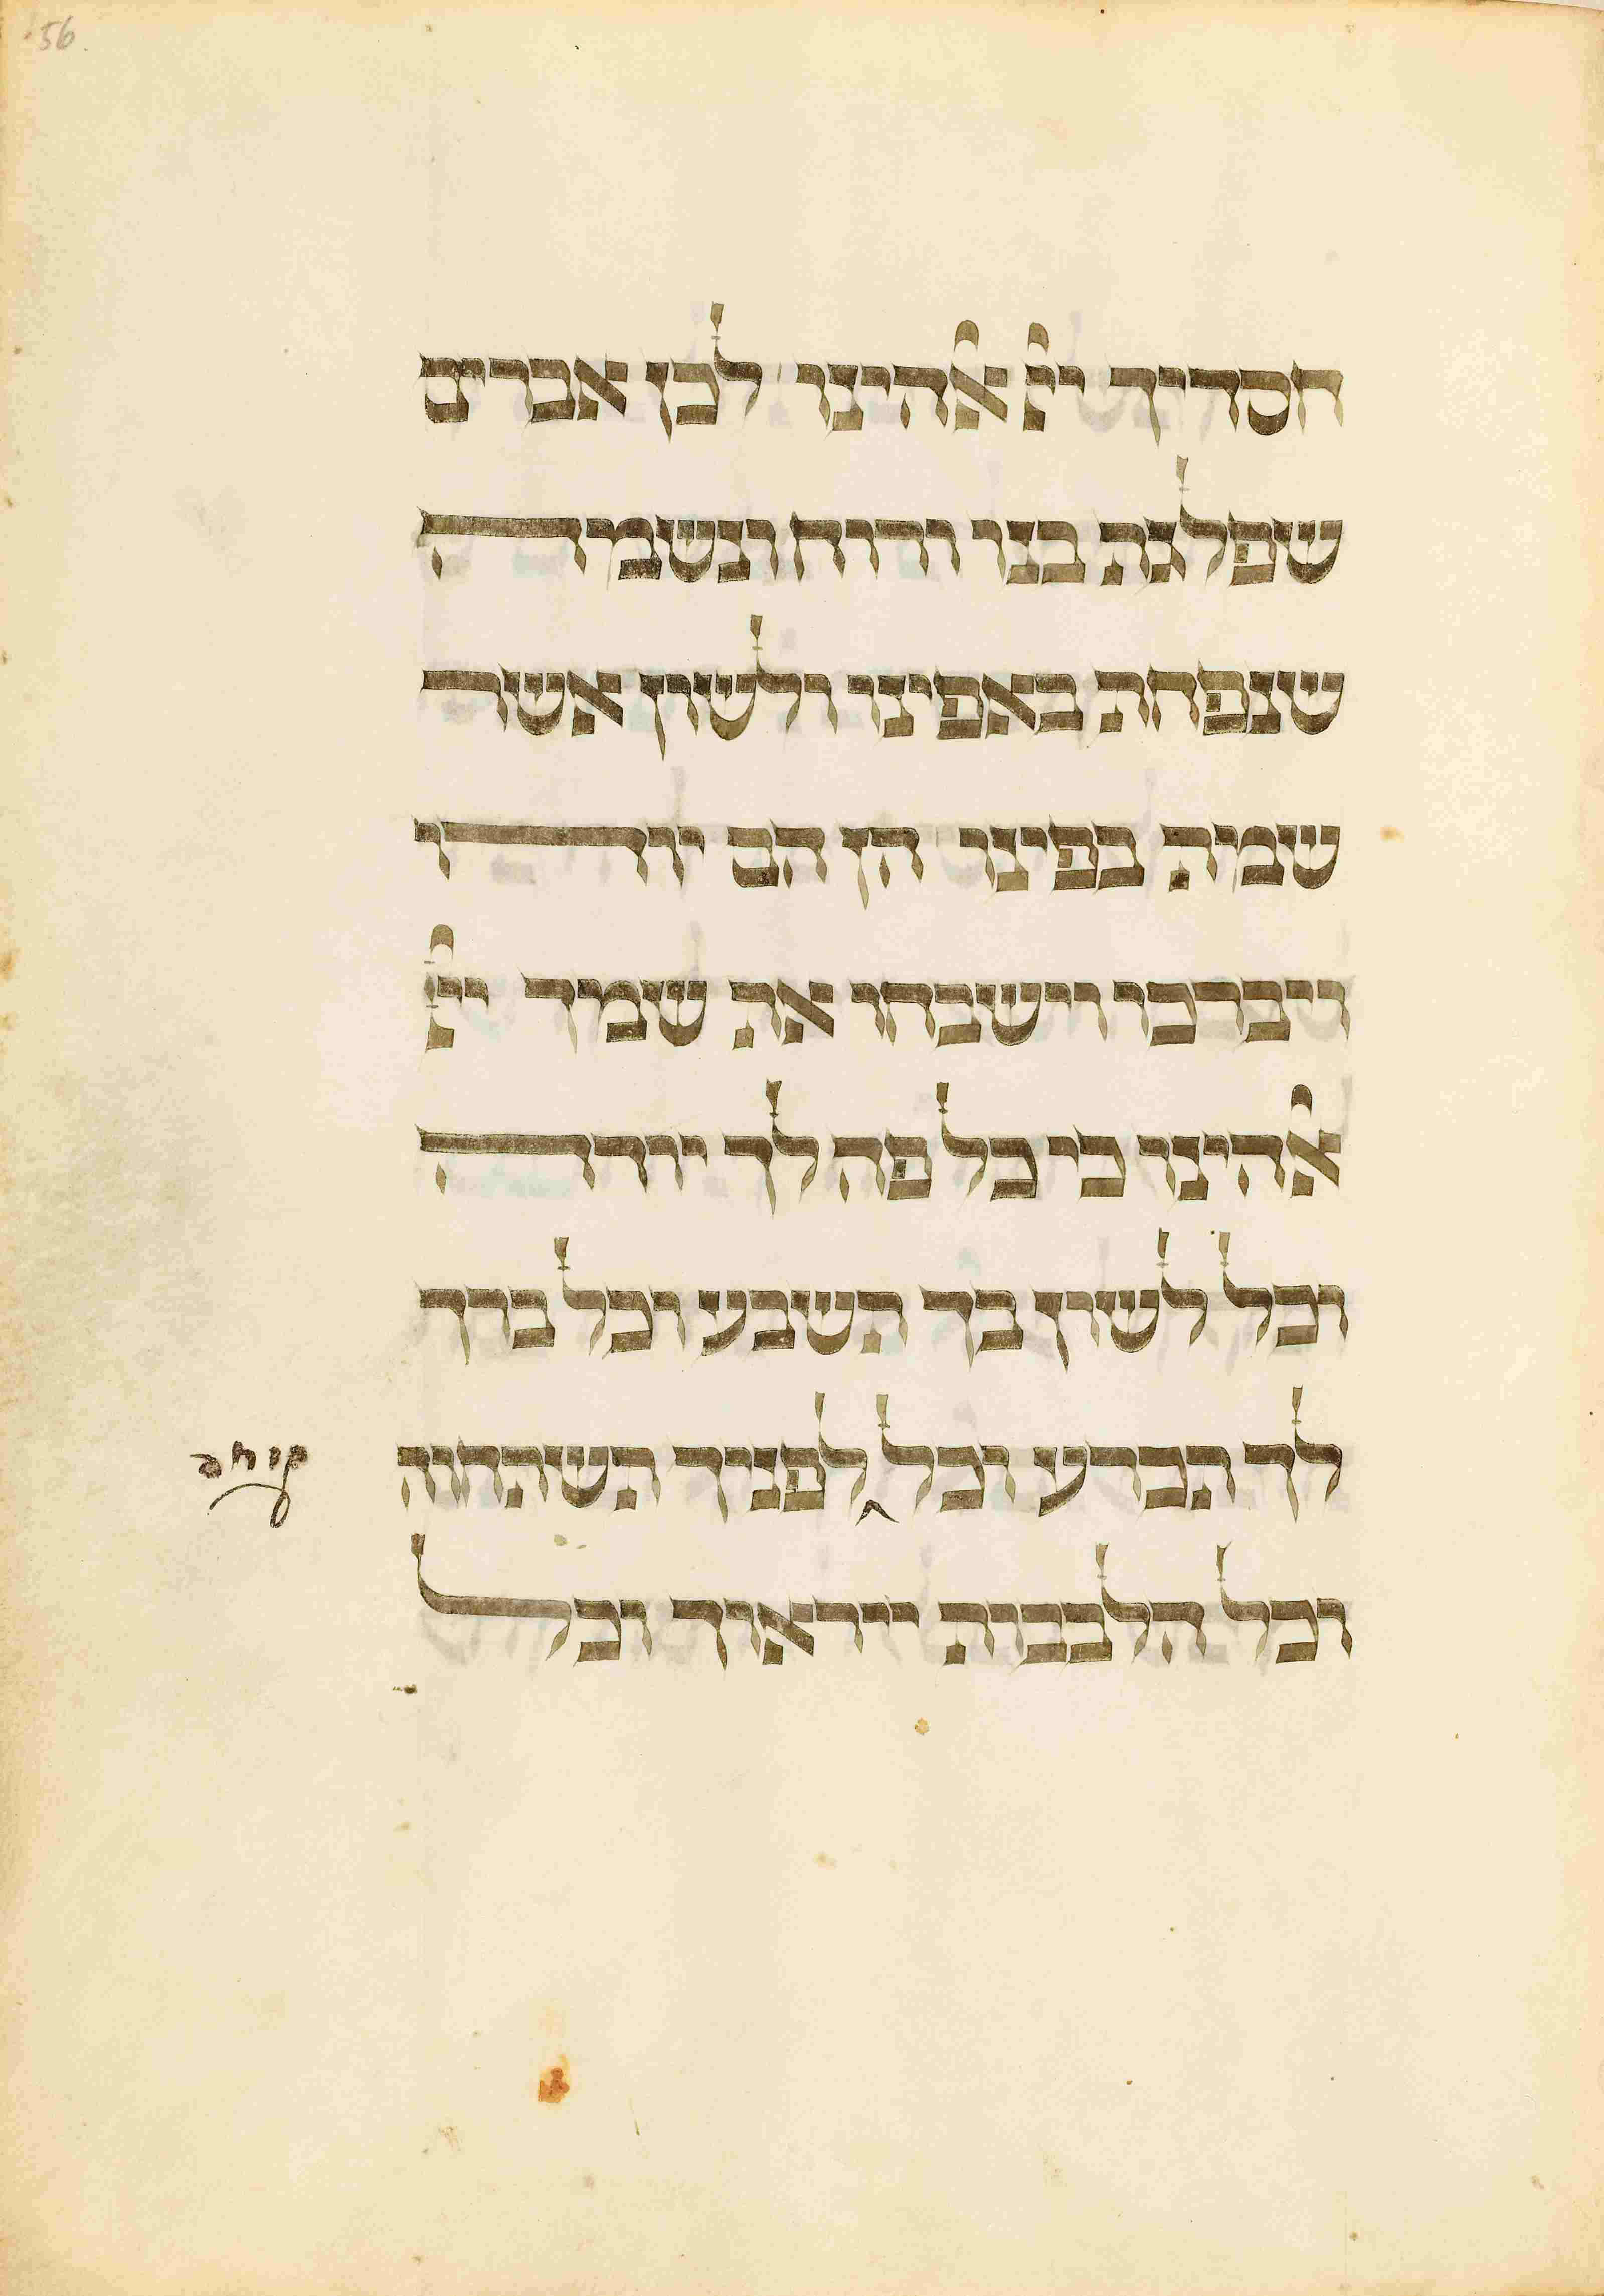 56
חסדיך יי ﭏהינו לכן אברים
שפלגת בנו ורוח ונשמה
שנפחת באפינו ולשון אשר
שמת בפינו הן הם יודו
ויברכו וישבחו את שמך יי
ﭏהינו כי כל פה לך יודה
וכל לשון בך תשבע וכל ברך
לך תכרע וכל לפניך תשתחוה קומה
וכל הלבבות ייראוך וכל